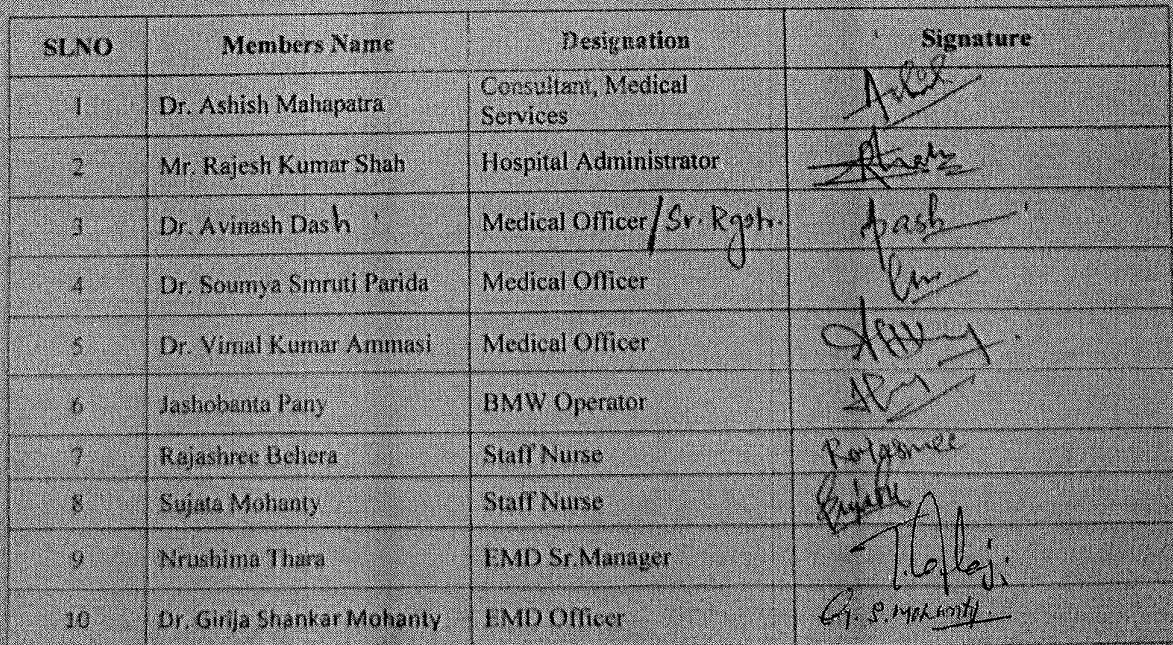 SLNO Members Name Designation Signature
1 Dr. Ashish Mahapatra Consultant, Medical
Services
2 Mr. Rajesh Kumar Shah Hospital Administrator
3 Dr. Avinash Dash Medical Officer/Sr. Rgstr. Dash
4 Dr. Soumya Smruti Parida Medical Officer
5 Dr. Vimal Kumar Ammasi Medical Officer
6 Jashobanta Pany BMW Operator
7 Rajashree Behera Staff Nurse
8 Sujata Mohanty Staff Nurse Sujata
9 Nrushima Thara EMD Sr.Manager
10 Dr. Girija Shankar Mohanty EMD Officer G. S. Mohanty